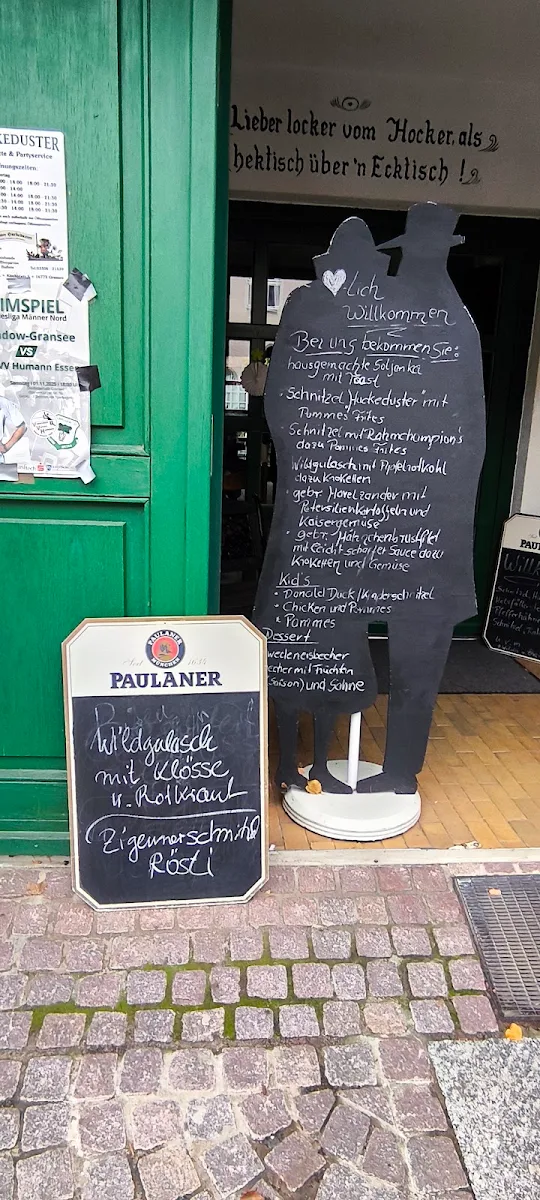 Lieber locker vom Hocker, als
hektisch über'n Ecktisch !
KEDUSTER
& Partyservice
IMSPIEL
esliga Männer Nord
dow-Gransee
VS
V Humann Essen
lich
Willkommen
Bei uns bekommen Sie:
hausgemachte Soljanka
mit Toast
• Schnitzel "Huckeduster" mit
Pommes Frites
• Schnitzel mit Rahmchampion's
dazu Pommes Frites
Wildgulasch mit Apfelrotkohl
dazu Kroketten
• gebr. Havelzander mit
Petersilienkartoffeln und
Kaisergemüse
• gebr. Hähnchenbrustfilet
mit leicht scharfer Sauce dazu
Kroketten und Gemüse
Kid's
• Donald Duck/Kinderschnitzel
• Chicken und Pommes
• Pommes
Dessert
wedeneisbecher
echer mit Früchten
(Saison) und Sahne
Seit 1634
PAULANER
MÜNCHEN
PAULANER
Wildgulasch
mit Klösse
u. Rotkraut
Zigeunerschnitzel
Rösti
PAU